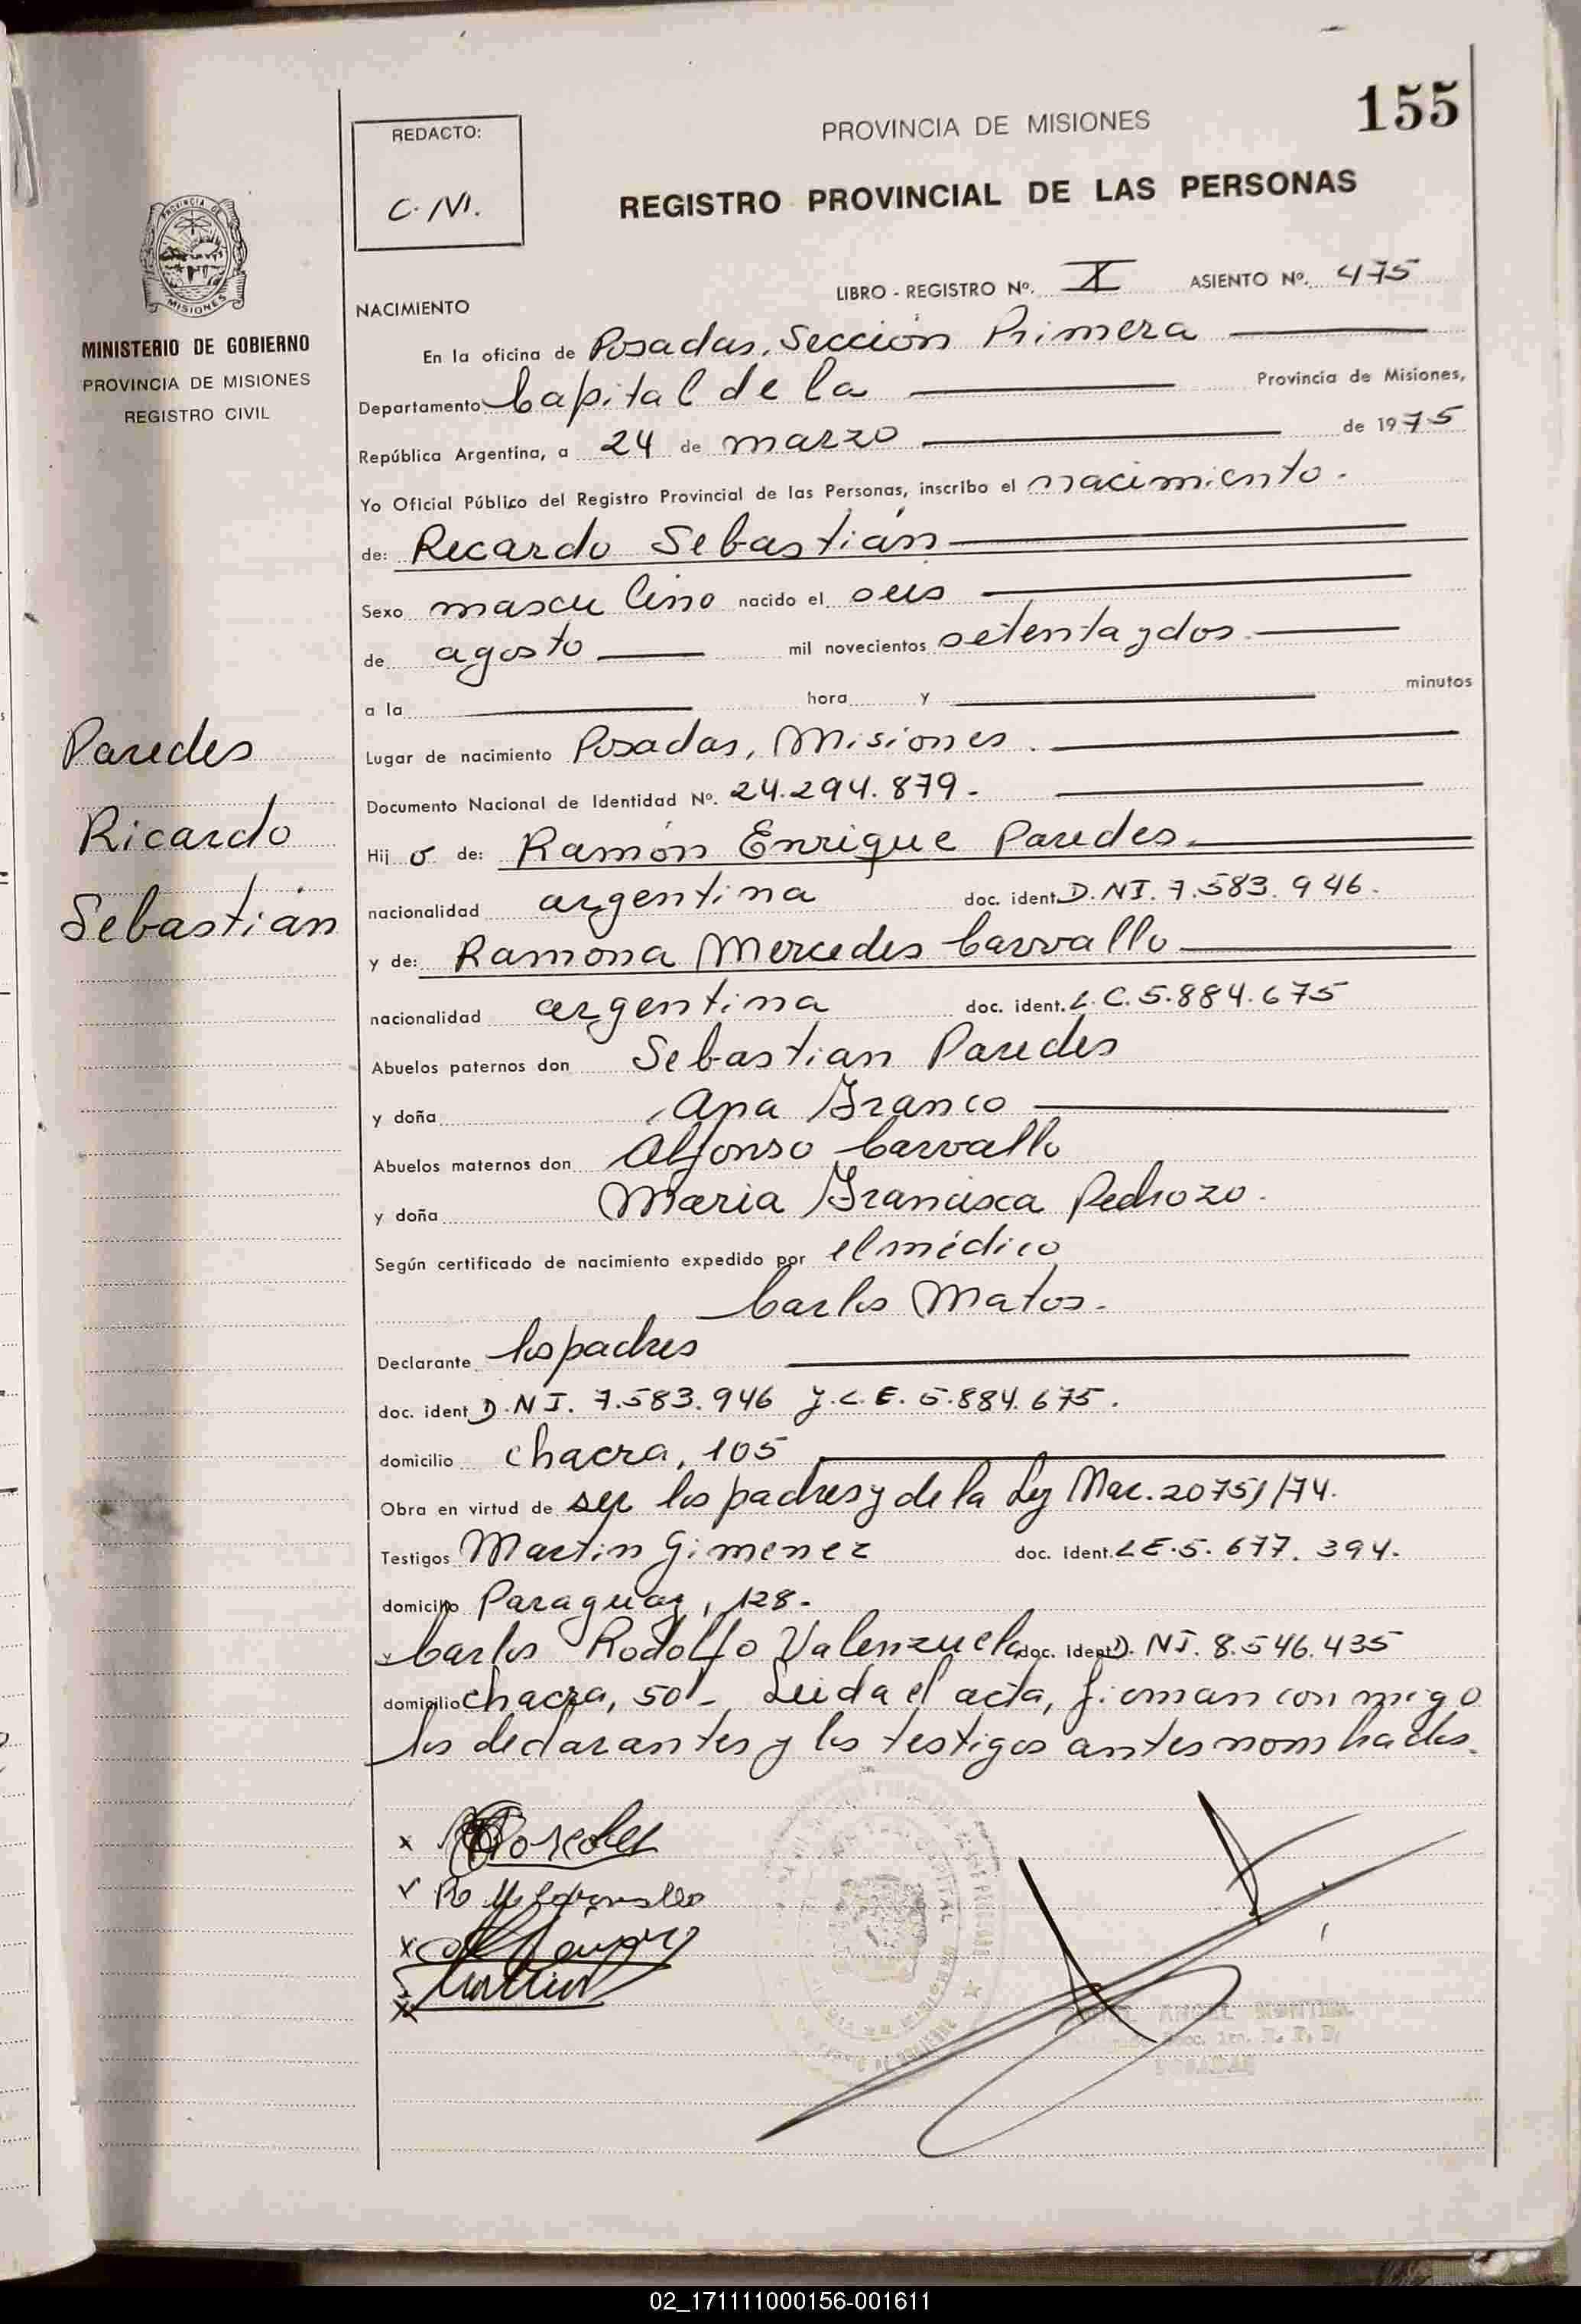 155
REDACTO:
C. M.
PROVINCIA DE MISIONES
REGISTRO PROVINCIAL DE LAS PERSONAS
PROVINCIA DE
MISIONES
MINISTERIO DE GOBIERNO
PROVINCIA DE MISIONES
REGISTRO CIVIL
Paredes
Ricardo
Sebastián
LIBRO - REGISTRO Nº. I ASIENTO Nº. 475
NACIMIENTO
En la oficina de Posadas, Sección Primera
Departamento Capital de la Provincia de Misiones,
República Argentina, a 24 de marzo de 1975
Yo Oficial Público del Registro Provincial de las Personas, inscribo el nacimiento.
de: Ricardo Sebastián
Sexo masculino nacido el seis
de agosto mil novecientos setenta y dos.
a la hora y minutos
Lugar de nacimiento Posadas, Misiones.
Documento Nacional de Identidad Nº. 24.294.879.
Hij o de: Ramón Enrique Paredes.
nacionalidad argentina doc. ident. D.NI. 7.583.946.
y de: Ramona Mercedes Carvallo
nacionalidad argentina doc. ident. L.C. 5.884.675
Abuelos paternos don Sebastian Paredes
y doña Ana Franco
Abuelos maternos don Alfonso Carvallo
y doña Maria Francisca Pedrozo.
Según certificado de nacimiento expedido por el médico
Carlos Matos.
Declarante los padres
doc. ident D.NI. 7.583.946 y L.E. 5.884.675.
domicilio chacra, 105
Obra en virtud de ser los padres y de la Ley Nac. 20751/74.
Testigos Martin Gimenez doc. ident. LE. 5.677.394.
domicilio Paraguay, 128.
y Carlos Rodolfo Valenzuela doc. ident D. NI. 8.546.435
domicilio chacra, 50 - Leida el acta, firman con migo
los declarantes y los testigos antes nombrados.
x Paredes
02_171111000156-001611